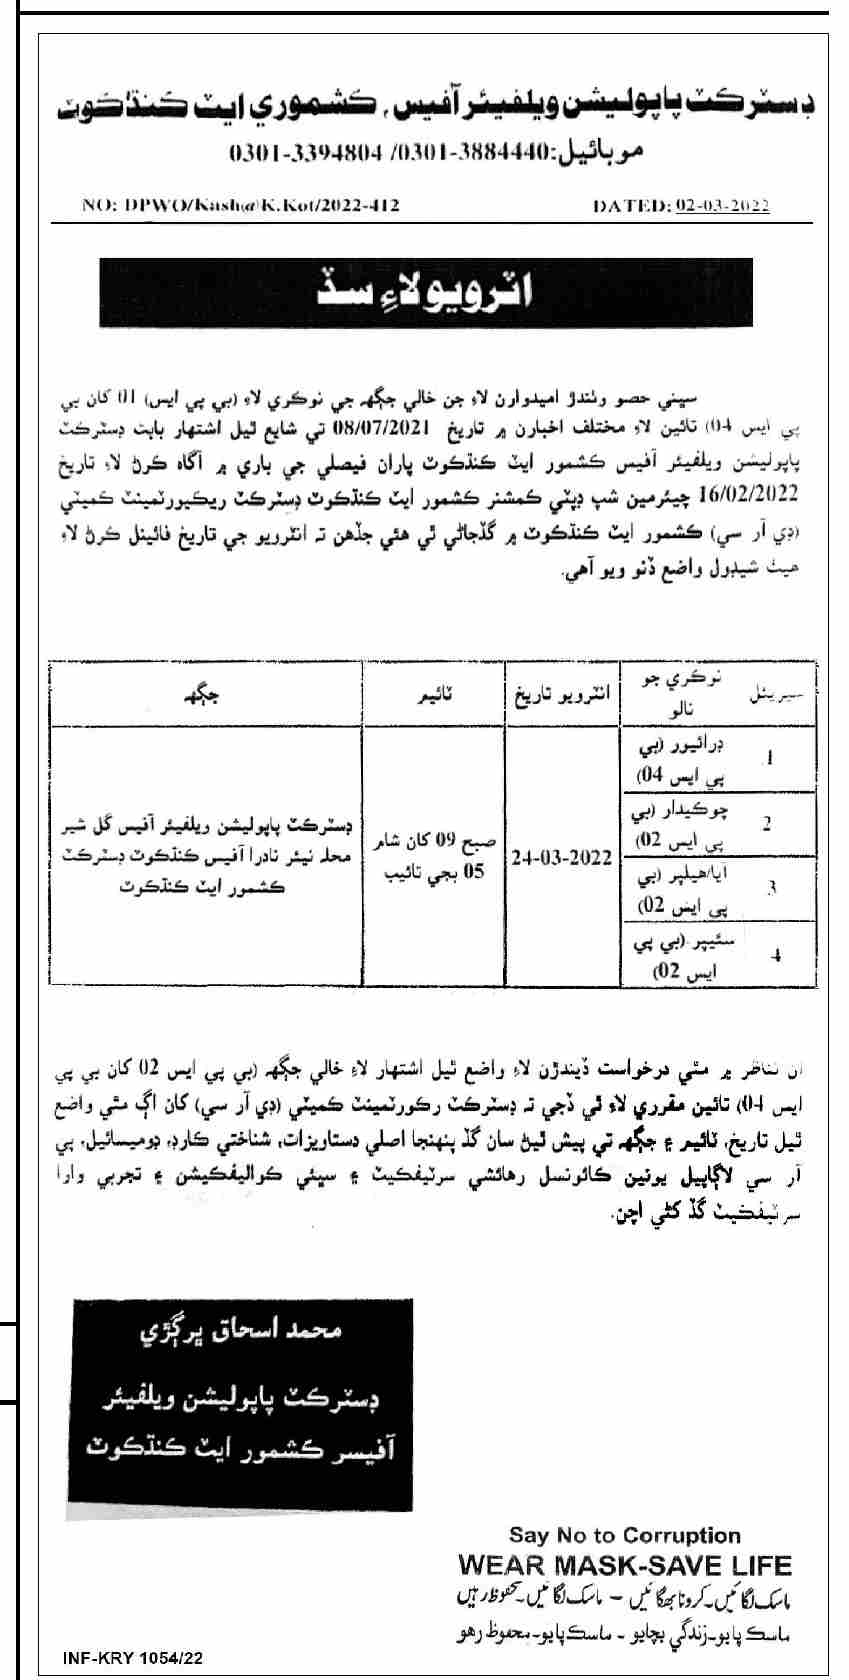 ڊسٽرڪٽ پاپوليشن ويلفيئر آفيس، ڪشموري ايٽ ڪنڌڪوٽ
موبائيل:0301-3884440 /0301-3394804
NO: DPWO/Kash@K.Kot/2022-412 DATED: 02-03-2022
انٽرويو لاءِ سڏ
سڀني حصو وٺندڙ اميدوارن لاءِ جن خالي جڳهه جي نوڪري لاءِ (بي پي ايس) 01 کان بي
پي ايس 04) تائين لاءِ مختلف اخبارن ۾ تاريخ 08/07/2021 تي شايع ٿيل اشتهار بابت ڊسٽرڪٽ
پاپوليشن ويلفيئر آفيس ڪشمور ايٽ ڪنڌڪوٽ پاران فيصلي جي باري ۾ آگاه ڪرڻ لاءِ تاريخ
16/02/2022 چيئرمين شپ ڊپٽي ڪمشنر ڪشمور ايٽ ڪنڌڪوٽ ڊسٽرڪٽ ريڪيورٽمينٽ ڪميٽي
(ڊي آر سي) ڪشمور ايٽ ڪنڌڪوٽ ۾ گڏجاڻي ٿي هئي جڏهن ته انٽرويو جي تاريخ فائينل ڪرڻ لاءِ
هيٺ شيڊول واضع ڏنو ويو آهي.
سيريئل نوڪري جو نالو انٽرويو تاريخ ٽائيم جڳهه
1 ڊرائيور (بي پي ايس 04)
2 چوڪيدار (بي پي ايس 02)
3 آيا/هيلپر (بي پي ايس 02)
4 سئيپر (بي پي ايس 02)
24-03-2022
صبح 09 کان شام
05 بجي تائيب
ڊسٽرڪٽ پاپوليشن ويلفيئر آفيس گل شير
محله نيئر نادرا آفيس ڪنڌڪوٽ ڊسٽرڪٽ
ڪشمور ايٽ ڪنڌڪوٽ
ان تناظر ۾ مٿي درخواست ڏيندڙن لاءِ واضع ٿيل اشتهار لاءِ خالي جڳهه (بي پي ايس 02 کان بي پي
ايس 04) تائين مقرري لاءِ ٿي ڏجي ته ڊسٽرڪٽ رڪورٽمينٽ ڪميٽي (ڊي آر سي) کان اڳ مٿي واضع
ٿيل تاريخ، ٽائيم ۽ جڳهه تي پيش ٿيڻ سان گڏ پنهنجا اصلي دستاويزات، شناختي ڪارڊ، ڊوميسائيل، پي
آر سي لاڳاپيل يونين ڪائونسل رهائشي سرٽيفڪيٽ ۽ سڀئي ڪواليفڪيشن ۽ تجربي وارا
سرٽيفڪيٽ گڏ کڻي اچن.
محمد اسحاق ڀرڳڙي
ڊسٽرڪٽ پاپوليشن ويلفيئر
آفيسر ڪشمور ايٽ ڪنڌڪوٽ
Say No to Corruption
WEAR MASK-SAVE LIFE
ماسک لگائیں۔ کرونا بھگائیں – ماسک لگائیں۔ محفوظ رہیں
ماسڪ پايو-زندگي بچايو - ماسڪ پايو-محفوظ رهو
INF-KRY 1054/22